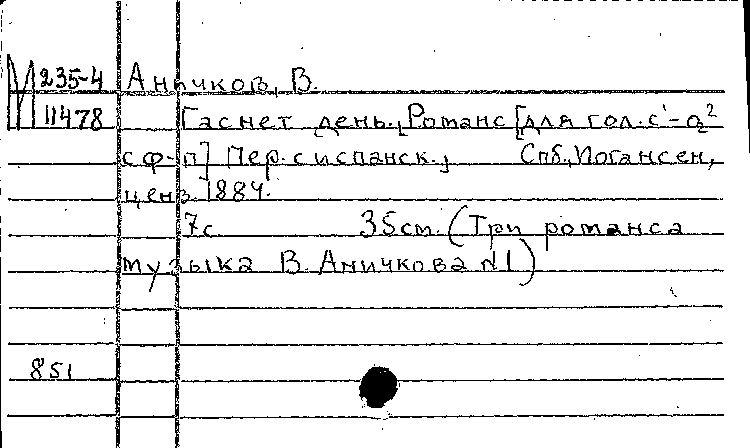 М 235-4 Аничков, В.
11478 Гаснет день. Романс [для гол. с¹-а²
с ф-п] Пер. с испанск., Спб., Иогансен,
ценз. 1884.
7с 35см. (Три романса
музыка В. Аничкова №1)
851